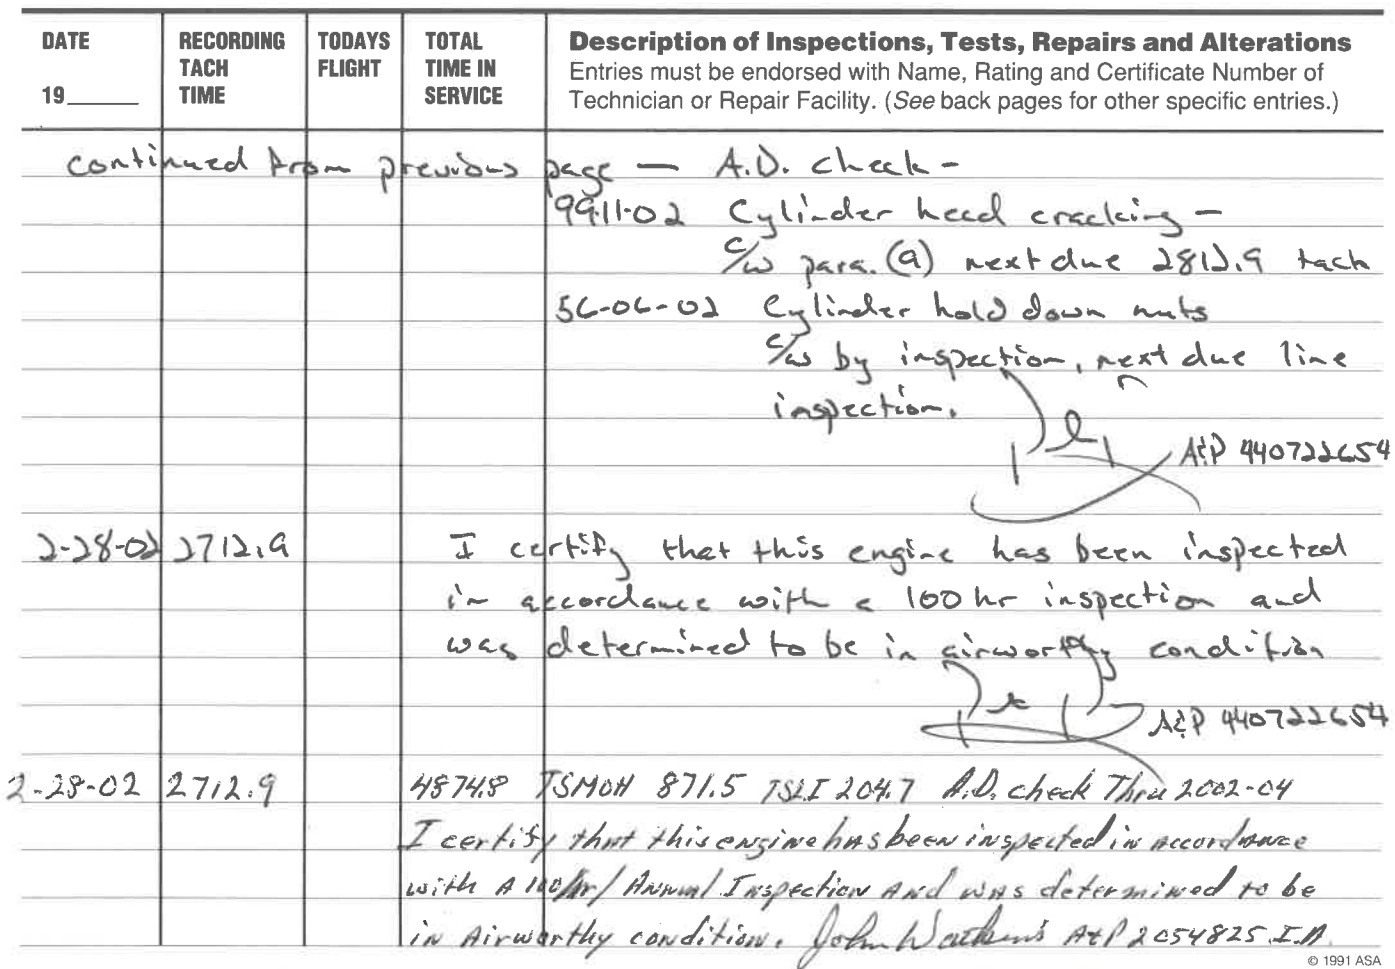 DATE RECORDING TODAYS TOTAL Description of Inspections, Tests, Repairs and Alterations
TACH FLIGHT TIME IN Entries must be endorsed with Name, Rating and Certificate Number of
19____ TIME SERVICE Technician or Repair Facility. (See back pages for other specific entries.)
continued from previous page — A.D. check -
99-11-02 Cylinder head cracking -
c/w para. (a) next due 2812.9 tach
56-06-02 Cylinder hold down nuts
c/w by inspection, next due line
inspection.
A&P 440722654
2-28-02 2712.9 I certify that this engine has been inspected
in accordance with a 100 hr inspection and
was determined to be in airworthy condition
A&P 440722654
2-28-02 2712.9 4874.8 TSMOH 871.5 TSLI 204.7 A.D. check Thru 2002-04
I certify that this engine has been inspected in accordance
with A 100/hr/ Annual Inspection And was determined to be
in Airworthy condition. John Watkins A&P 2054825 I.A.
© 1991 ASA